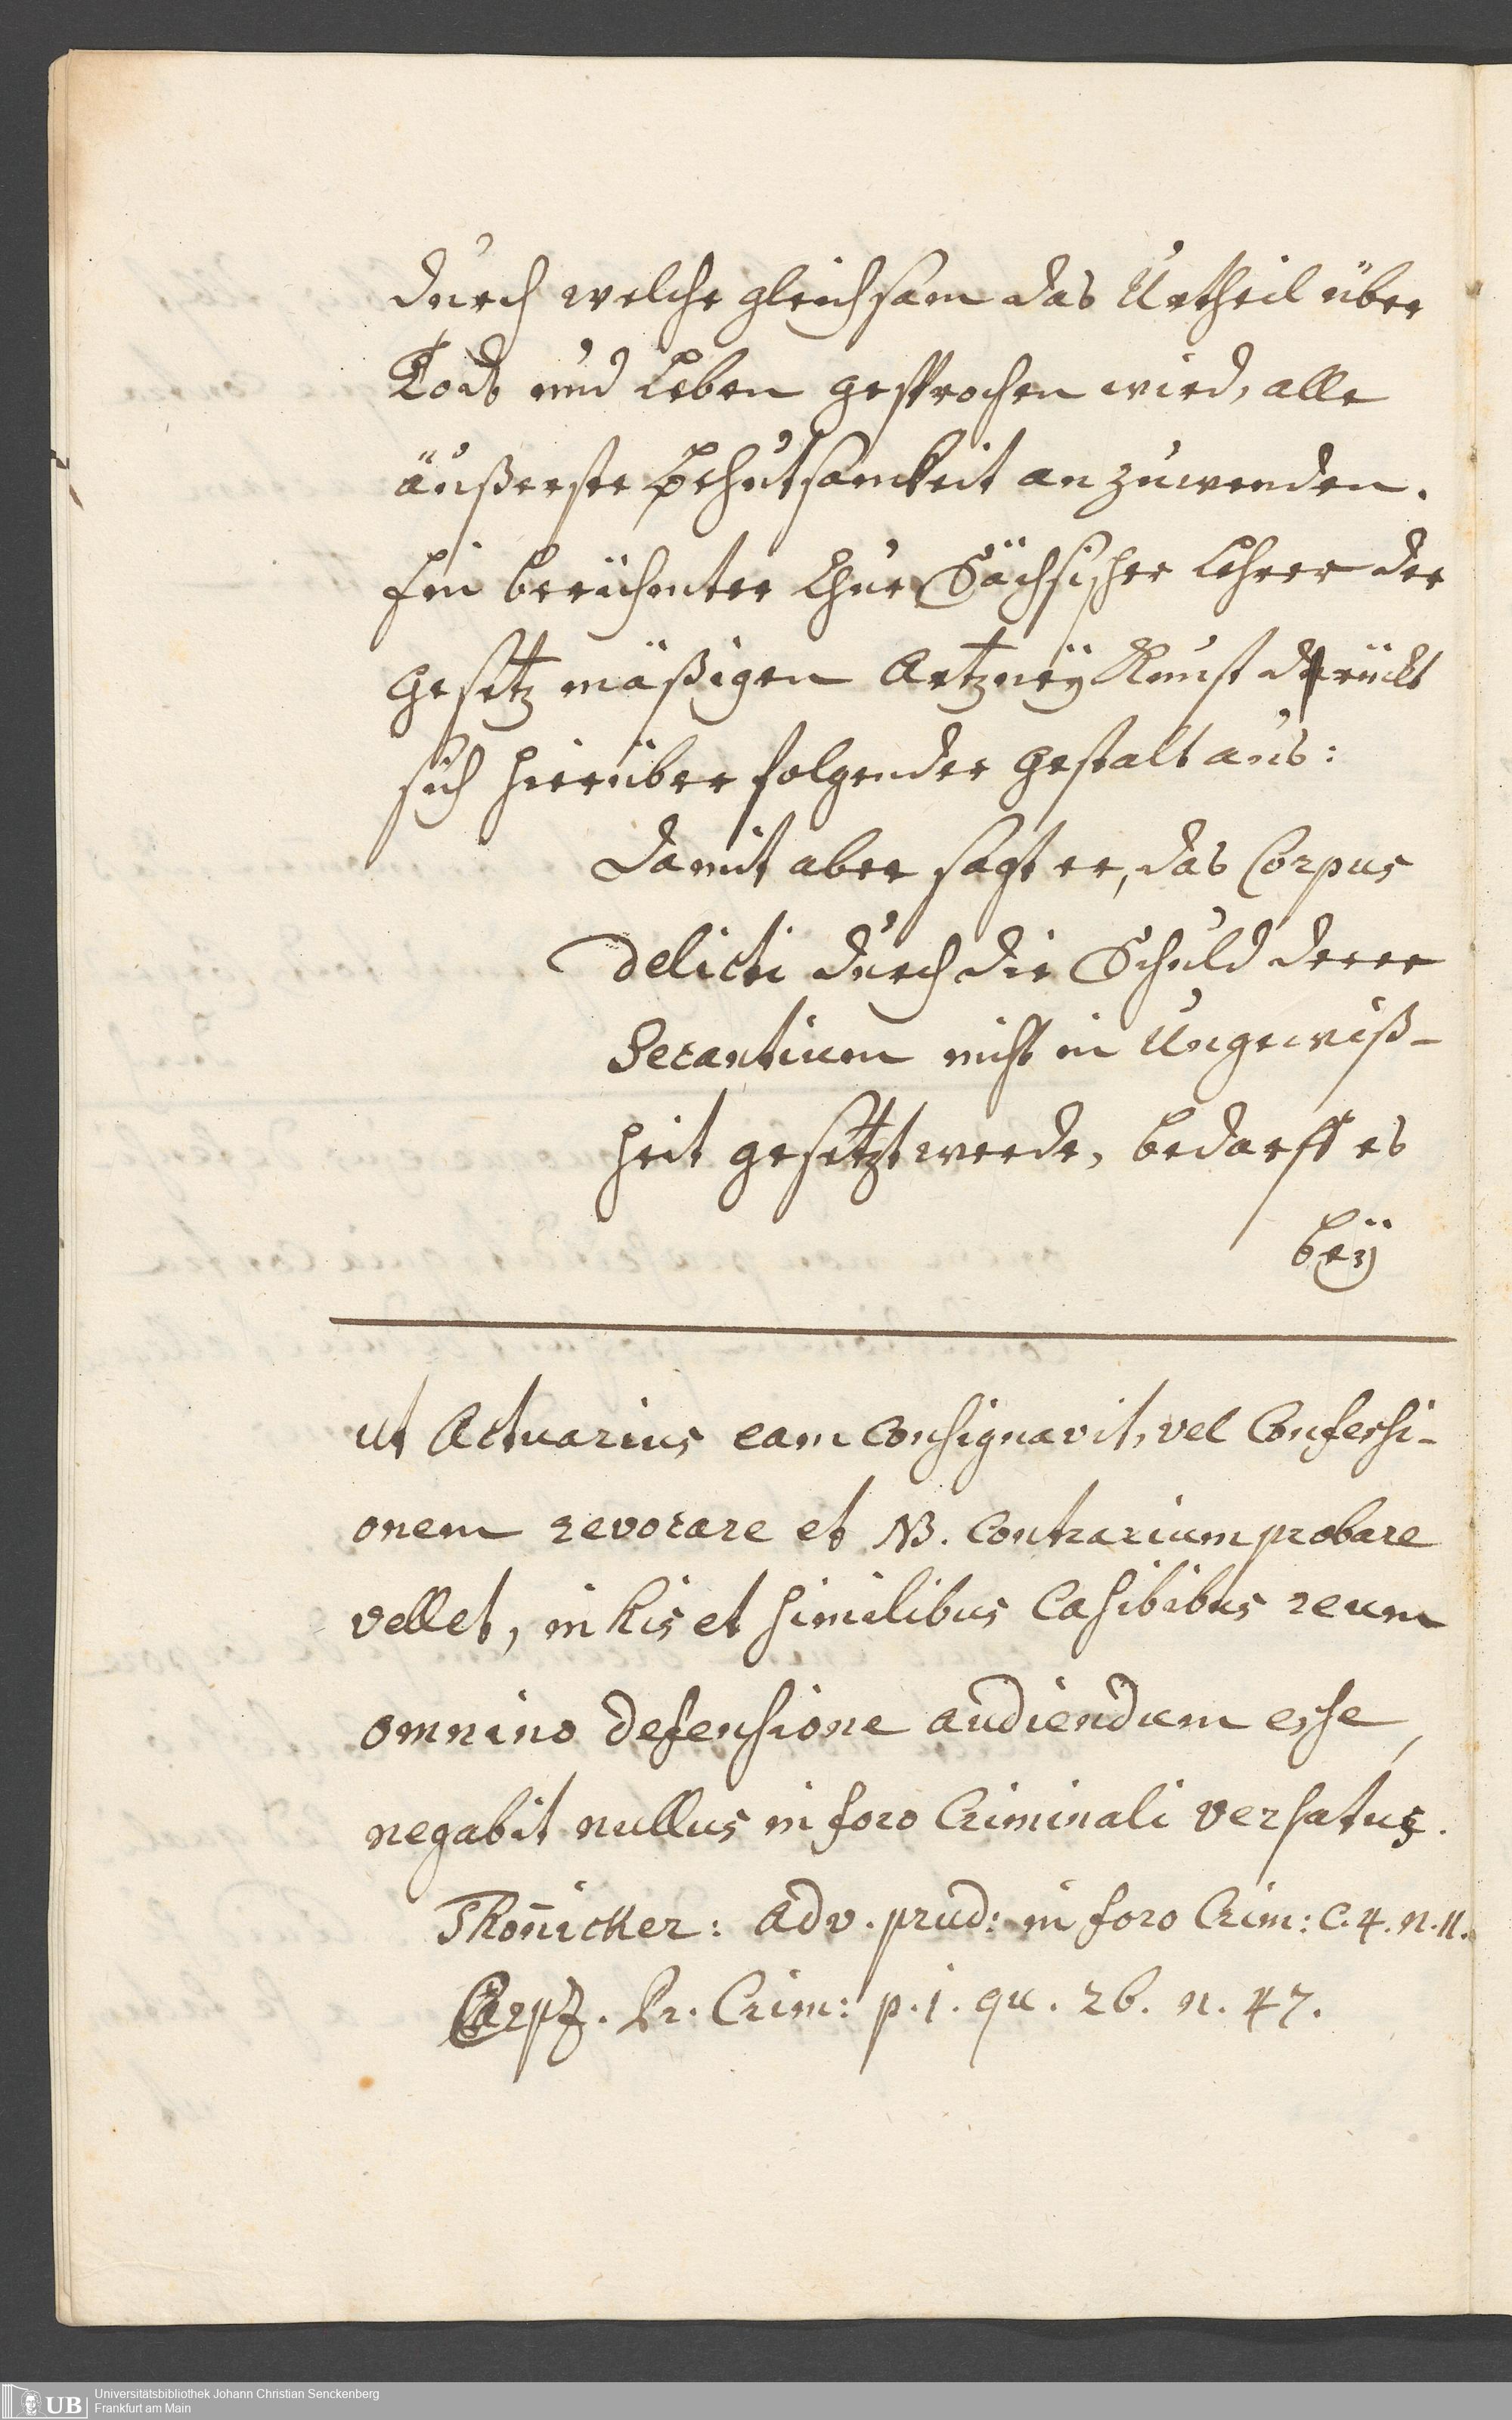 durch welche gleichsam das Urtheil über
Todt und Leben gesprochen wird, alle
äußerste Behutsamkeit anzuwenden.
Ein berühmter Chur Sächsischer Lehrer der
Gesetz mäßigen Artzneÿ Kunst drückt
sich hierüber folgender Gestalt aus:
Damit aber sagt er, das Corpus
Delicti durch die Schuld derer
Secantium nicht in Ungewiß-
heit gesetzt werde, bedarff es
beÿ
ut Actuarius eam consignavit, vel Confessi-
onem revocare et NB. contrarium probare
vellet, in his et similibus Casibibus reum
omnino defensione audiendum esse,
negabit nullus in foro Criminali versatus.
Thoñicker: Adv. prud: in foro Crim: C. 4. n. 11.
Carpz. Pr. Crim: p. 1. qu. 26. n. 47.
Universitätsbibliothek Johann Christian Senckenberg
Frankfurt am Main
UB